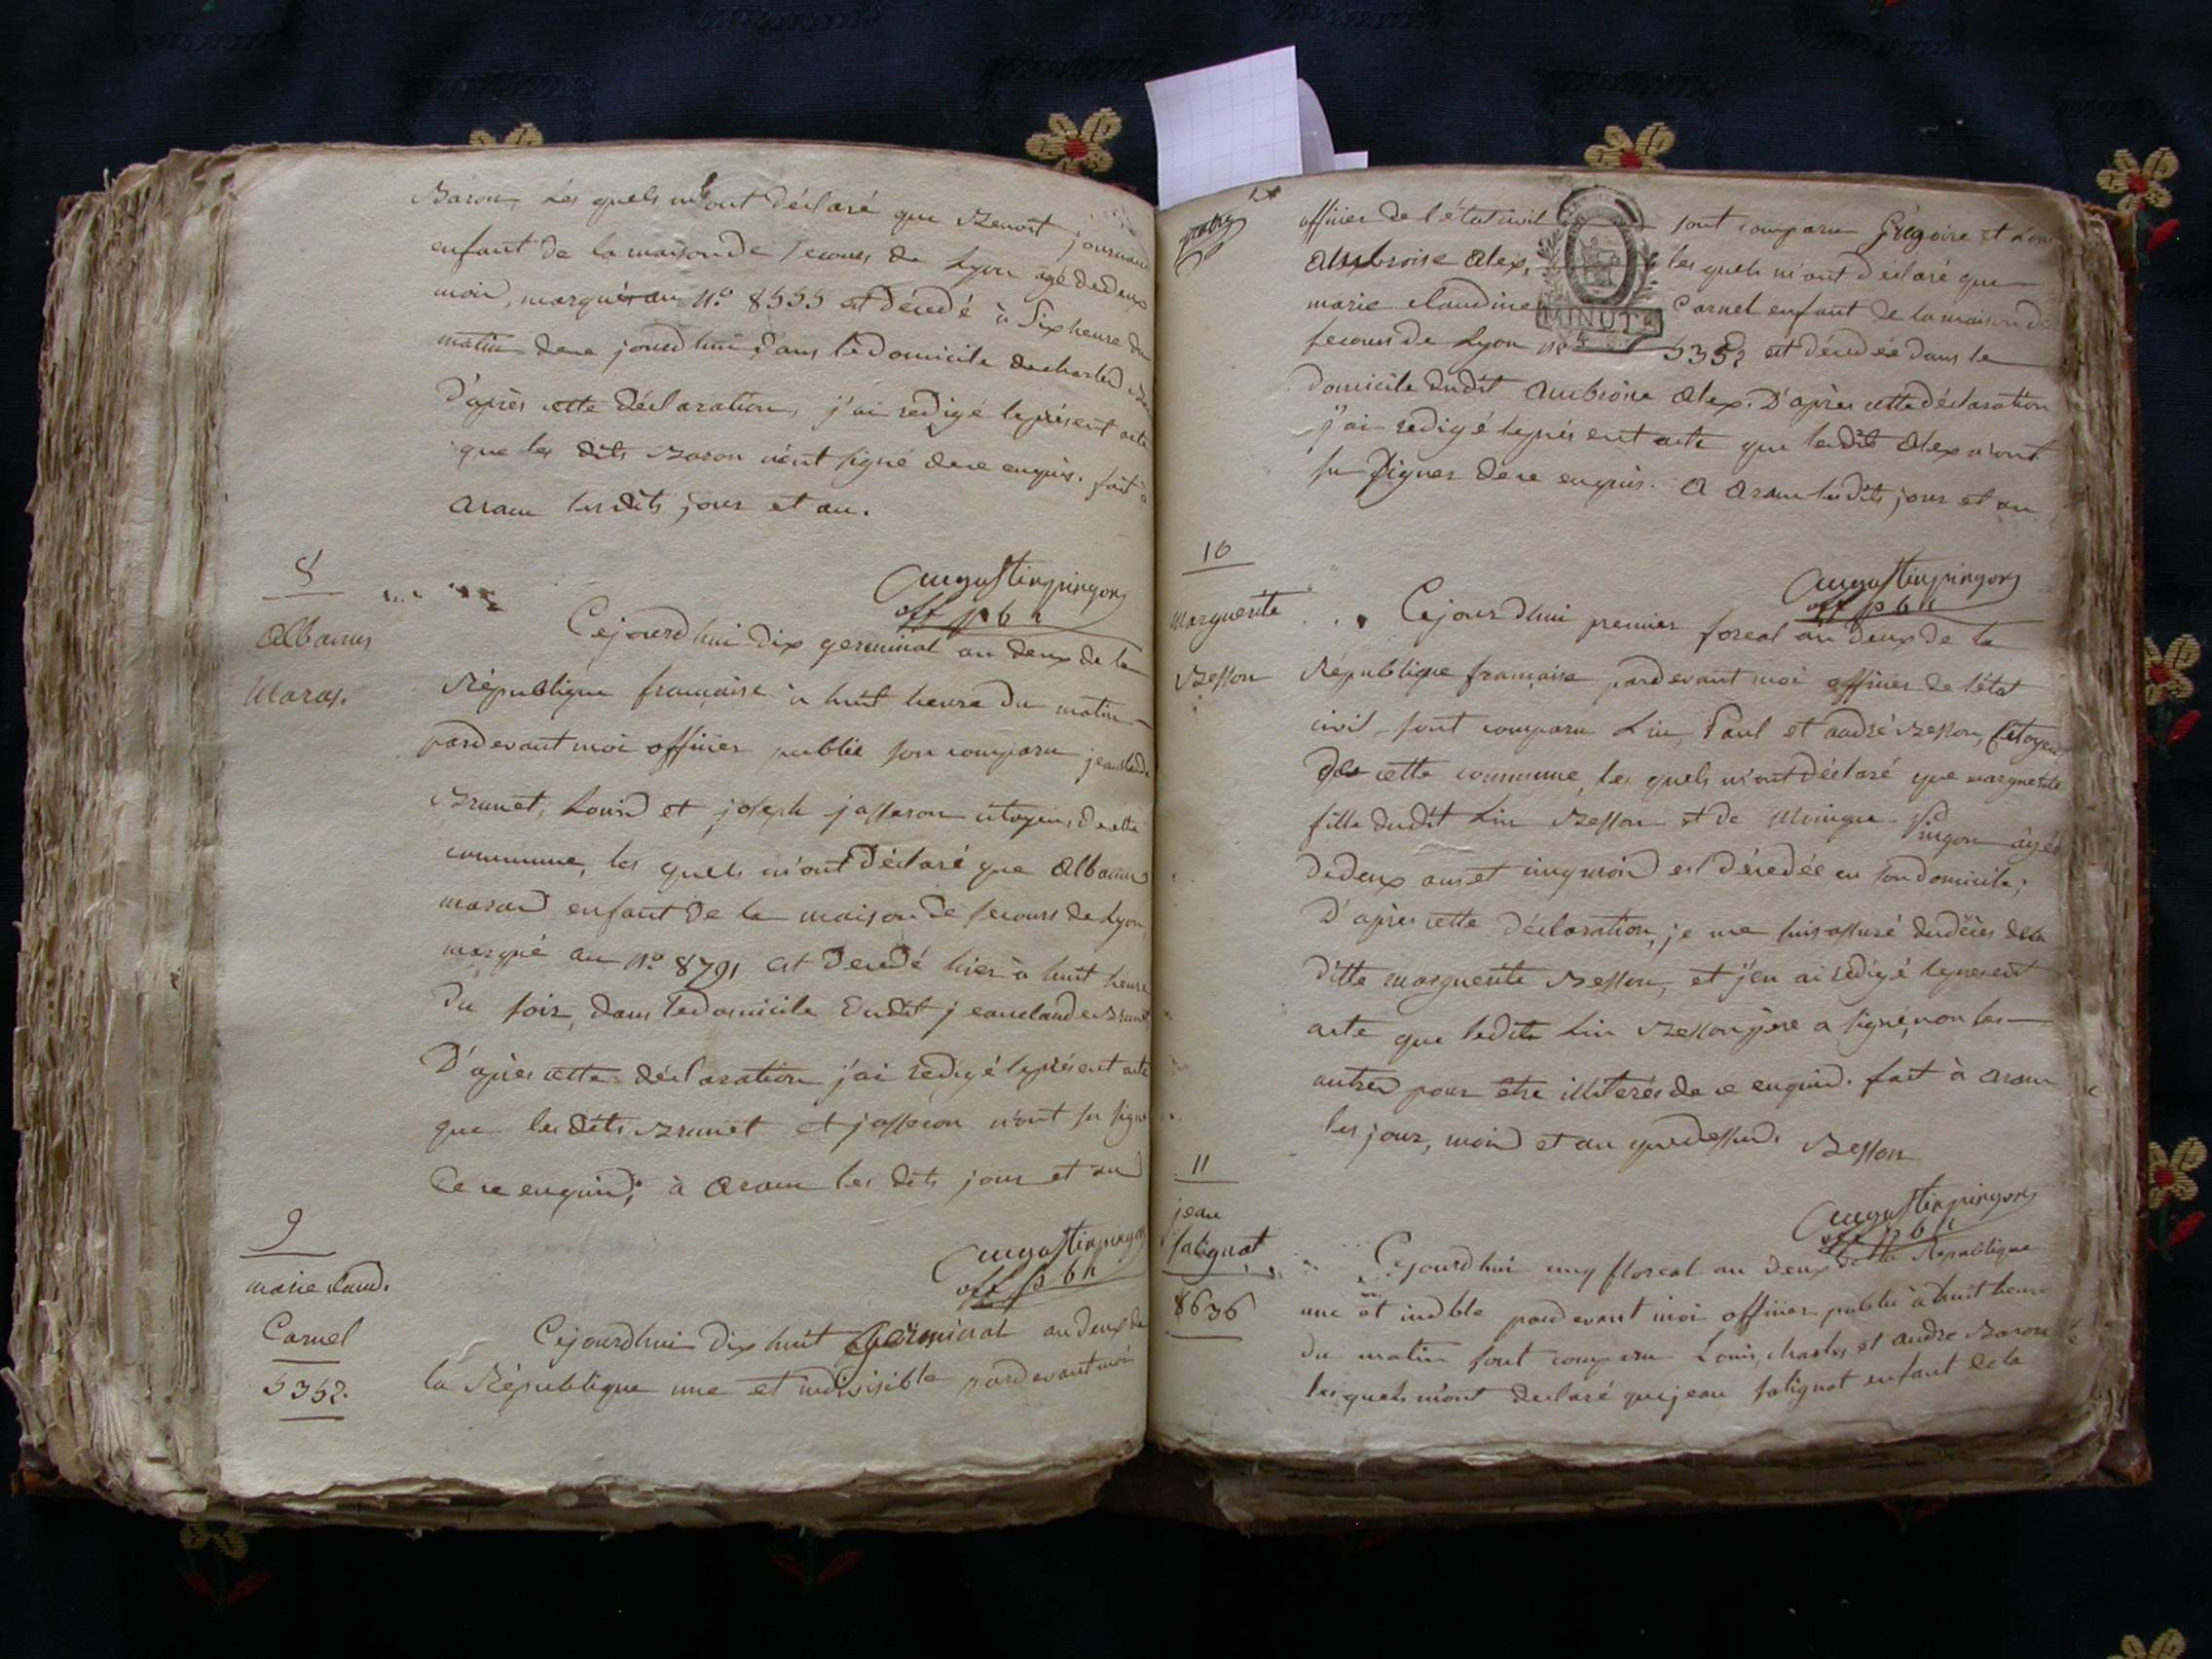 Baron, les quels m'ont déclaré que Benoît journaud
enfant de la maison de secours de Lyon agé de deux
mois, marqué au N.o 8555 est décedé à Six heure du
matin de ce jourd'hui dans le domicile de charles
D'après cette déclaration, j'ai redigé le présent acte
que les dits Baron n'ont signé de ce enquis. fait à
aram les dits jour et an.
augustin pingon
off pbk
8
Albanus
Maras.
Cejourd'hui dix germinal an deux de la
République française à huit heure du matin
pardevant moi officier public son comparu jean claude
Brunet, Louis et joseph jasseron citoyens de cette
commune, les quels m'ont déclaré que Albanus
maras enfant de la maison de secours de Lyon
marqué au N.o 8791 est decedé hier à huit heure
du soir, dans le domicile dudit jean claude Brunet
D'après cette déclaration j'ai redigé le présent acte
que les dits Brunet et jasseron n'ont su signé
de ce enquis; à aram les dits jour et an
augustin pingon
off pbk
9
marie claud.
Carnel
5352.
Cejourd'hui dix huit Germinal an deux de
la République une et indivisible pardevant moi
officier de l'état civil sont comparu Grégoire et
Ambroise Alex, les quels m'ont déclaré que
marie claudine Carnel enfant de la maison de
MINUTE
secours de Lyon N.o 5352 est décedée dans le
domicile dudit Ambroise Alex. D'après cette déclaration
j'ai redigé le présent acte que les dits Alex n'ont
su signer de ce enquis. A aram les dits jour et an
augustin pingon
off pbk
10
Marguerite
Besson
Cejourd'hui premier floreal an deux de la
République française pardevant moi officier de l'état
civil sont comparu Lin, Paul et andré Besson, Citoyens
de cette commune, les quels m'ont déclaré que marguerite
fille dudit Lin Besson et de Monique Pingon âgée
de deux ans et cinq mois est décedée en son domicile;
D'après cette déclaration, je me suis assuré du décès de la
ditte marguerite Besson, et j'en ai redigé le present
acte que ledit Lin Besson père a signé, non les
autres pour etre illiterés de ce enquis. fait à aram
les jour, mois et an que dessus. Besson
augustin pingon
off pbk
11
jean
salignat
8636
Cejourd'hui cinq floreal an deux de la République
une et indble pardevant moi officier public à huit heure
du matin sont comparu Louis, charles et andre Baron
lesquels m'ont declaré que jean salignat enfant de la